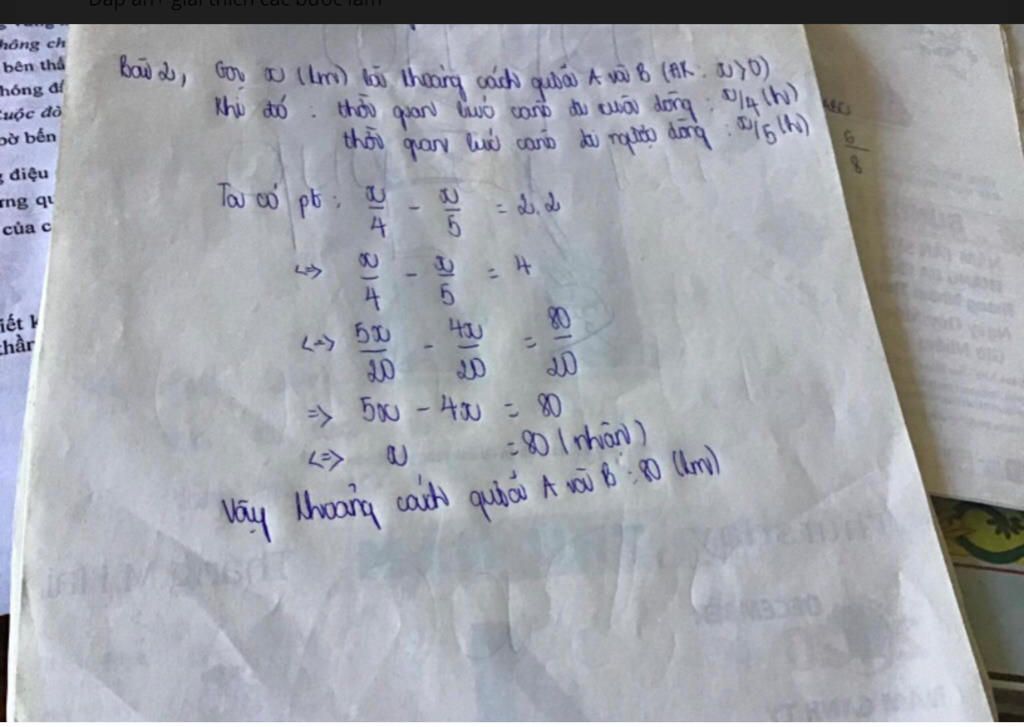 Đáp án+ giải thích các bước làm
hông ch
bên thả
hóng đi
cuộc đò
bờ bến
g điệu
ng qu
của c
iết k
thần
Bài 2, Gọi x (km) là khoảng cách giữa A và B (ĐK: x>0)
Khi đó: thời gian lúc canô đi xuôi dòng: x/4 (h)
thời gian lúc canô đi ngược dòng: x/5 (h)
6
8
Ta có pt: x/4 - x/5 = 2.2
<=> x/4 - x/5 = 4
<=> 5x/20 - 4x/20 = 80/20
=> 5x - 4x = 80
<=> x = 80 (nhận)
Vậy khoảng cách giữa A và B: 80 (km)